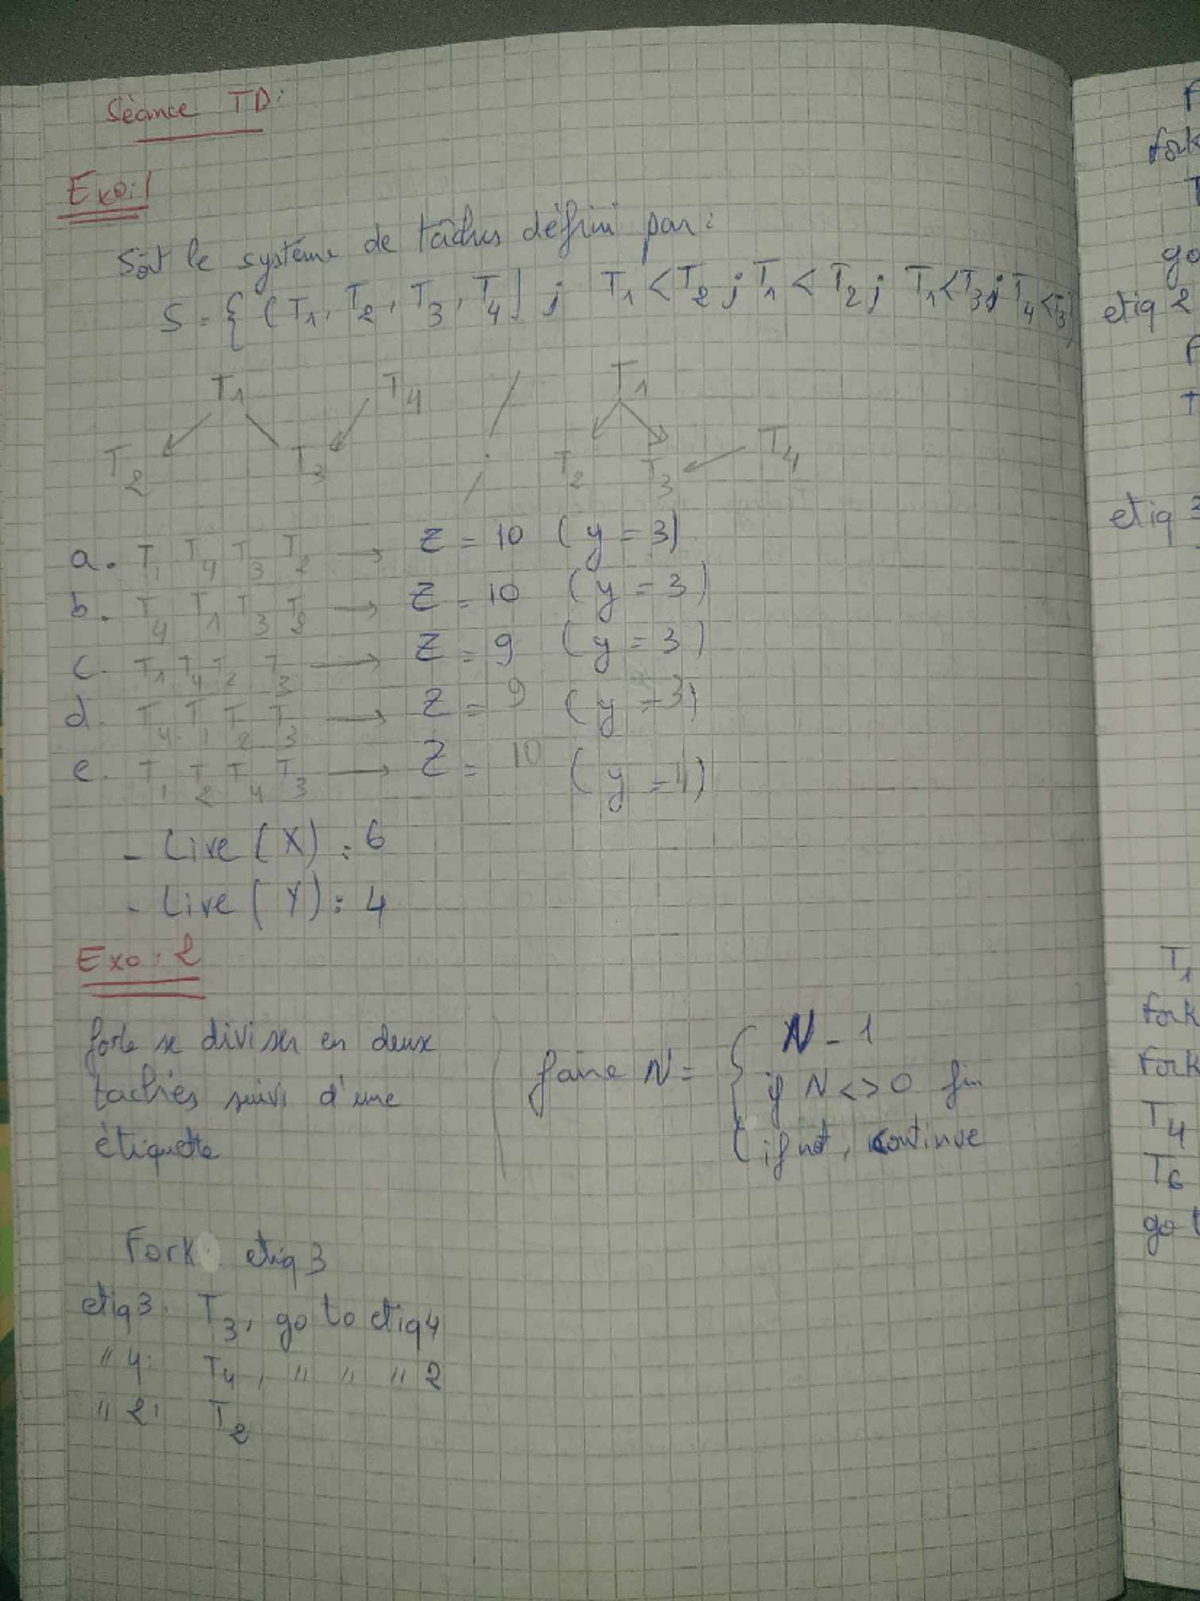 Séance TD:
Exo:1
Soit le système de tâches défini par:
S = { (T1, T2, T3, T4) ; T1 < T2 ; T1 < T2 ; T1 < T3 ; T4 < T3 }
T1 T4 T1
T2 T3 T2 T3 T4
a. T1 T4 T3 T2 → Z = 10 (y = 3)
b. T4 T1 T3 T2 → Z = 10 (y = 3)
c. T1 T4 T2 T3 → Z = 9 (y = 3)
d. T4 T1 T2 T3 → Z = 9 (y = 3)
e. T1 T2 T4 T3 → Z = 10 (y = 4)
- Live (X) : 6
- Live (Y) : 4
Exo: 2
fork se diviser en deux
tachés suivi d'une
étiquette
N - 1
faire N = { if N <> 0 fin
if not, continue
Fork etiq 3
etiq 3. T3, go to etiq 4
" 4: T4, " " " 2
" 2: T2
fork
go
etiq 2
etiq 3
T1
fork
Fork
T4
T6
go t